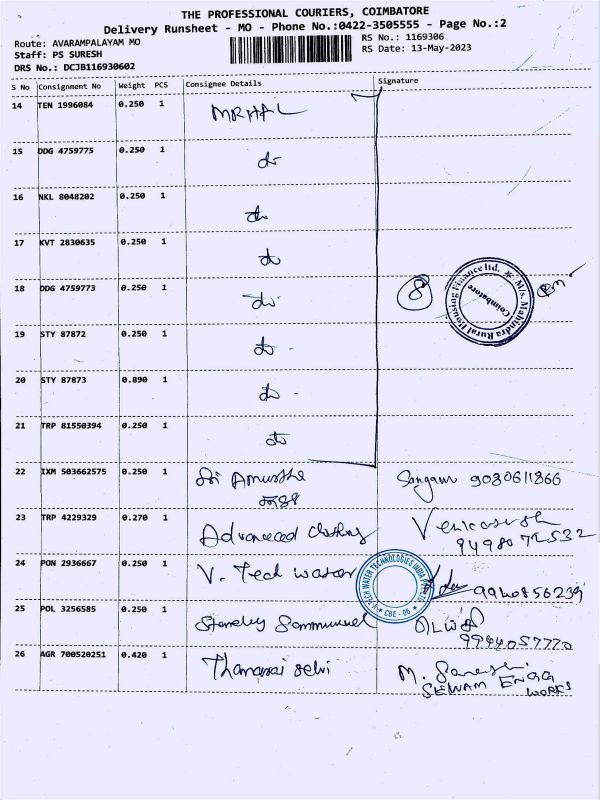 THE PROFESSIONAL COURIERS, COIMBATORE
Delivery Runsheet - MO - Phone No.:0422-3505555 - Page No.:2
Route: AVARAMPALAYAM MO
RS No.: 1169306
Staff: PS SURESH
RS Date: 13-May-2023
DRS No.: DCJB116930602
S No Consignment No Weight PCS Consignee Details Signature
14 TEN 1996084 0.250 1 MRHFL
15 DDG 4759775 0.250 1 do
16 NKL 8048202 0.250 1 do
17 KVT 2830635 0.250 1 do
18 DDG 4759773 0.250 1 do 8
M/s. Mahindra Rural Housing Finance ltd. ★ Coimbatore
19 STY 87872 0.250 1 do
20 STY 87873 0.890 1 do
21 TRP 81550394 0.250 1 do
22 IXM 503662575 0.250 1 Sri Sangam 9030611866
23 TRP 4229329 0.270 1 Advanced Venkatesh
24 PON 2936667 0.250 1 V. Tech water 9940856239
V-TECH WATER TECHNOLOGIES INDIA PVT LTD ★ CBE - 06 ★
25 POL 3256585 0.250 1 Stanley
9944057770
26 AGR 700520251 0.420 1 Thamarai selvi M.
ENGG
WORKS